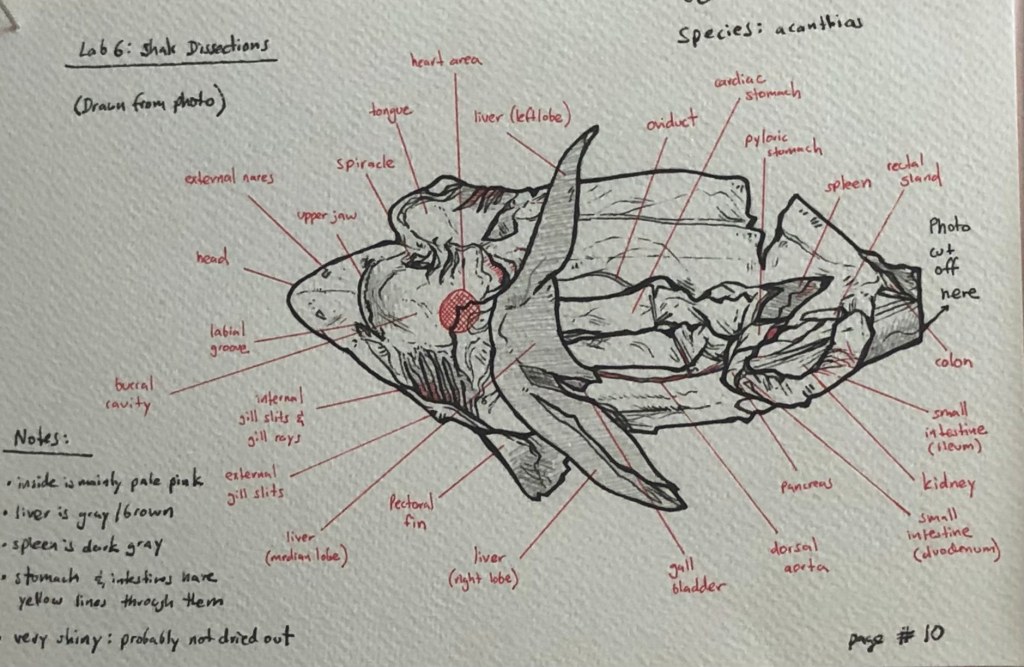 Lab 6: Shak Dissections
(Drawn from photo)
Species: acanthias
heart area
tongue
liver (left lobe)
cardiac
stomach
oviduct
pyloric
stomach
spiracle
external nares
spleen
rectal
gland
upper jaw
head
Photo
cut
off
here
labial
groove
buccal
cavity
internal
gill slits &
gill rays
external
gill slits
liver
(median lobe)
Pectoral
fin
liver
(right lobe)
gall
bladder
dorsal
aorta
pancreas
colon
small
intestine
(ileum)
kidney
small
intestine
(duodenum)
Notes:
• inside is mainly pale pink
• liver is gray/brown
• spleen is dark gray
• stomach & intestines have
yellow lines through them
• very shiny: probably not dried out
page # 10